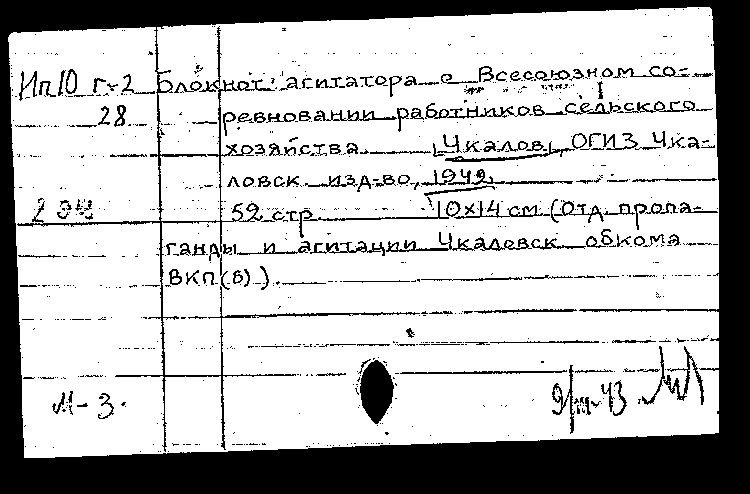 Ип10 г-2 Блокнот агитатора о Всесоюзном со-
28 ревновании работников сельского
хозяйства. [Чкалов], ОГИЗ Чка-
ловск. изд-во, 1942.
2 экз 52 стр 10х14 см (Отд. пропа-
ганды и агитации Чкаловск обкома
ВКП(б)).
М-3. 9/III-43.